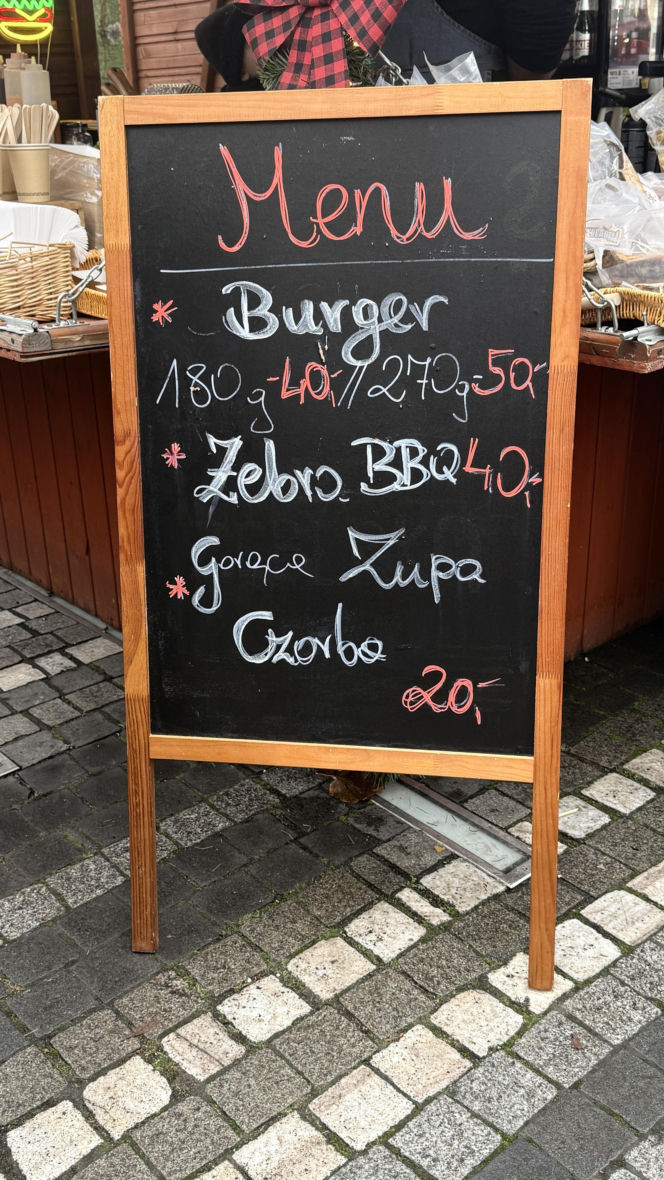 Menu
* Burger
180g-40,-//270g-50,-
* Żebra BBQ 40,-
* gorące Zupa
Czorba
20,-